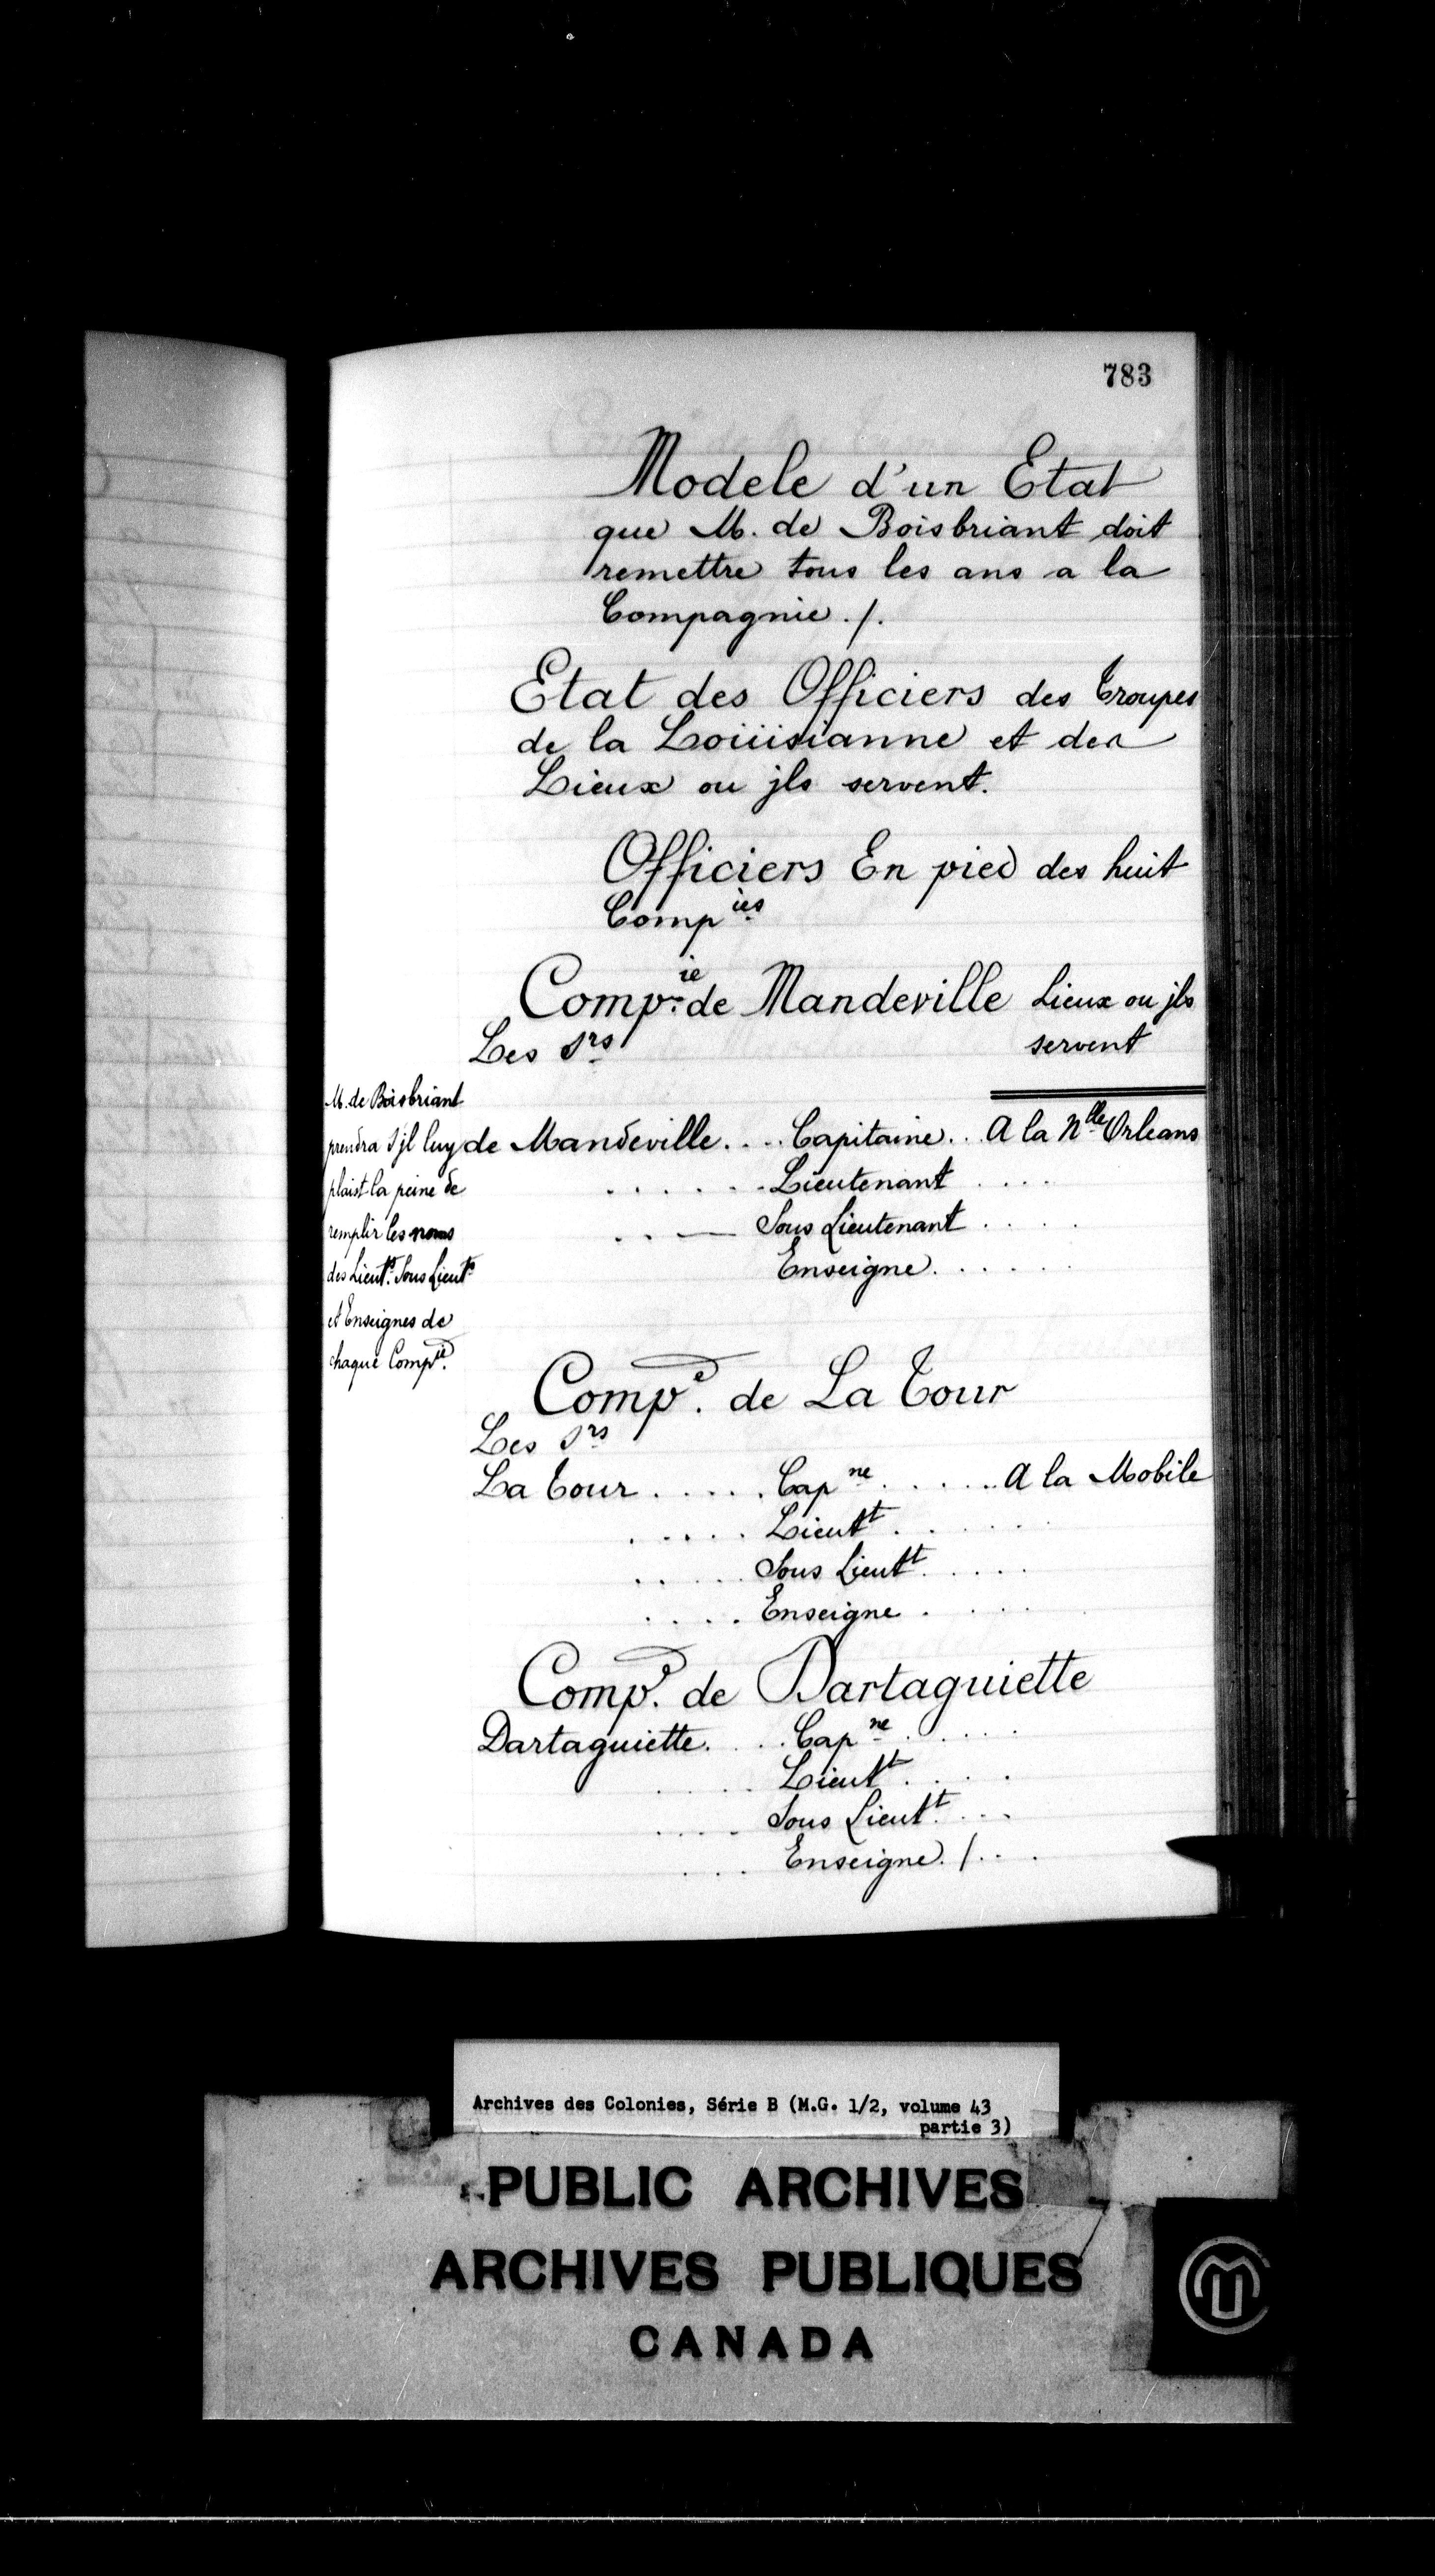 783
Modele d'un Etat
que M. de Boisbriant doit
remettre tous les ans a la
Compagnie ./.
Etat des Officiers des Troupes
de la Loüisianne et des
Lieux ou jls servent.
Officiers En pied des huit
Comp^ies
Comp^ie de Mandeville Lieux ou jls
servent
Les S^rs
M. de Boisbriant
prendra S'jl luy
plaist la peine de
remplir les noms
des Lieut^s. Sous Lieut^s
et Enseignes de
chaque Comp^ie.
de Mandeville. . . . Capitaine. . . A la N^lle Orleans
. . . . . . Lieutenant . . . .
. . — Sous Lieutenant . . . .
Enseigne. . . . . .
Comp^e. de La Tour
Les S^rs
La Tour . . . . . Cap^ne . . . . . . A la Mobile
. . . . . Lieut^t . . . . .
. . . . . Sous Lieut^t . . . . .
. . . . Enseigne . . . .
Comp^e. de Dartaguiette
Dartaguiette. . . . Cap^ne . . . . .
. . . . Lieut^t . . . .
. . . . Sous Lieut^t . . . .
. . . Enseigne ./. . .
Archives des Colonies, Série B (M.G. 1/2, volume 43
partie 3)
PUBLIC ARCHIVES
ARCHIVES PUBLIQUES
CANADA